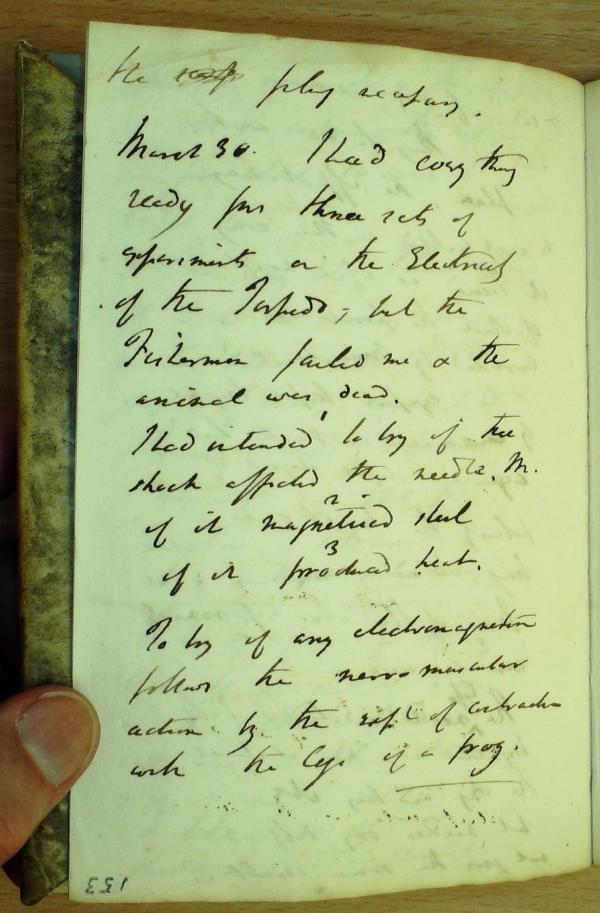 the play
March 30. I had every thing
ready for three sets of
experiments on the Electricity
of the Torpedo; but the
Fisherman failed me & the
animal was dead.
I had intended 1 to try if the
shock affected the needle. M.
if it 2 magnetised steel
if it 3 produced heat.
To try if any electromagnetism
follows the nervo muscular
action by the expt of contraction
with the legs of a frog.
153